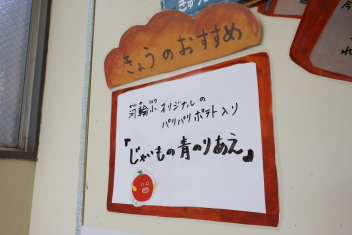 きょうのおすすめ
河輪小オリジナルの
パリパリポテト入り
「じゃいもの青のりあえ」